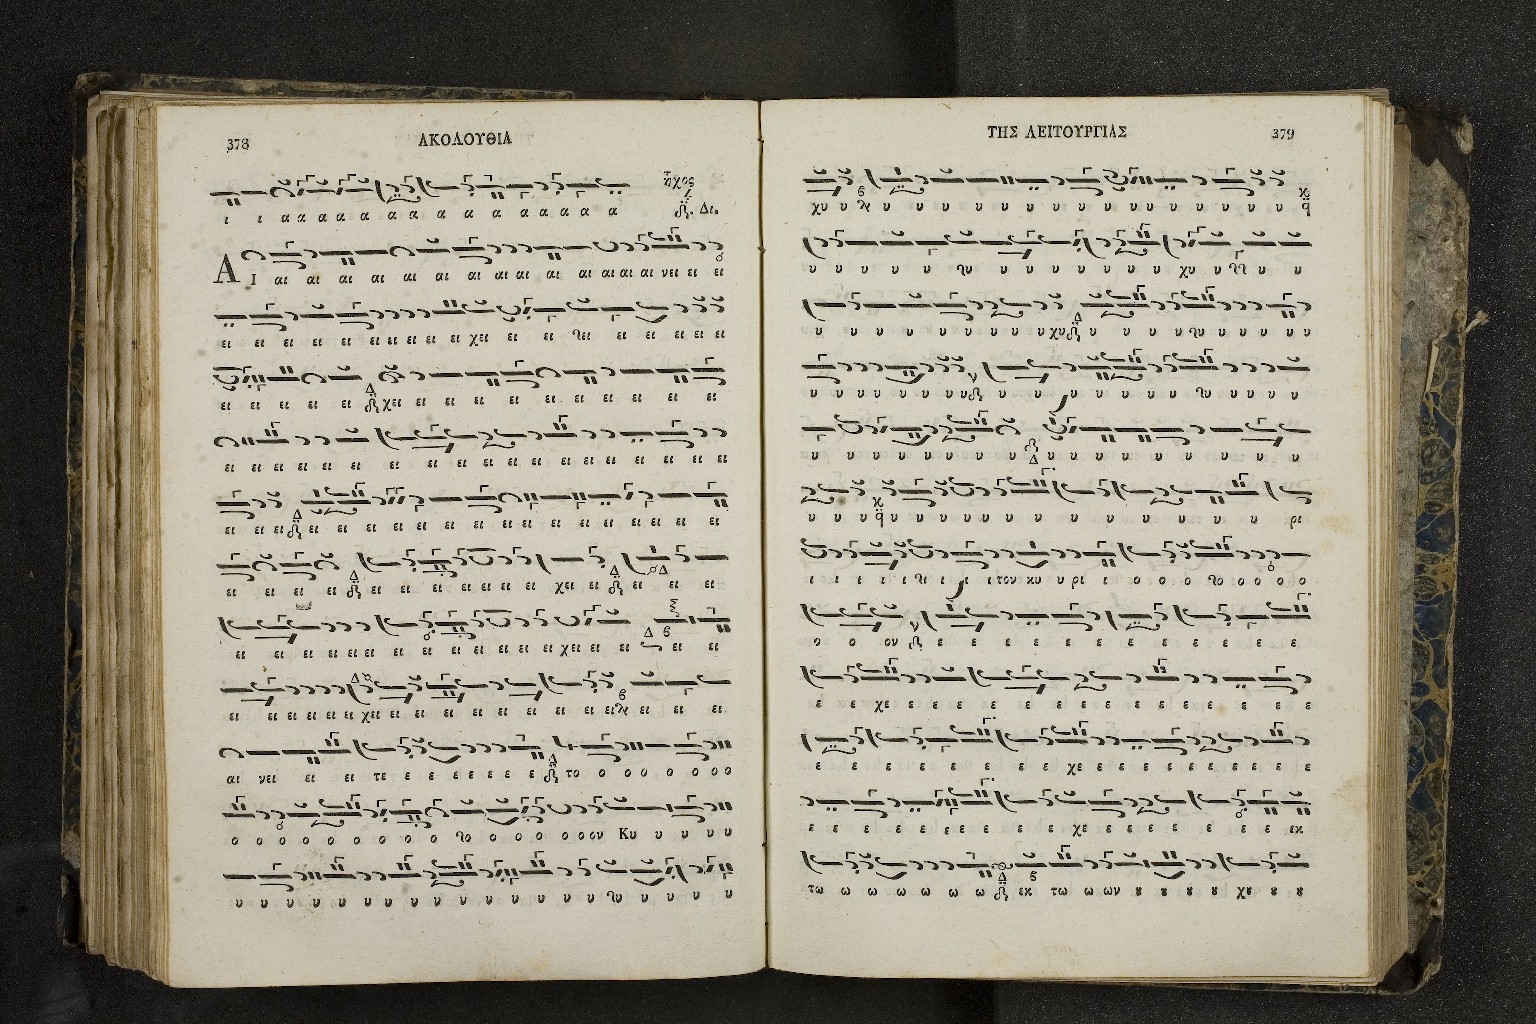 378
ΑΚΟΛΟΥΘΙΑ
ι ι α α α α α α α α α α α α α ἦχος Δι.
Α Ι αι αι αι αι αι αι αι αι αι αι αι αι αι αι νει ει ει
ει ει ει ει ει ει ει ει ει χει ει ει ει ει ει ει ει ει
ει ει ει ει ει χει ει ει ει ει ει ει ει ει ει ει
ει ει ει ει ει ει ει ει ει ει ει ει ει ει ει ει ει
ει ει ει ει ει ει ει ει ει ει ει ει ει ει ει ει ει
ει ει ει ει ει ει ει ει ει ει ει χει ει ει ει ει
ει ει ει ει ει ει ει ει ει ει ει ει ει χει ει ει ει ει
ει ει ει ει ει ει χει ει ει ει ει ει ει ει ει ει ει ει ει
αι νει ει ει τε ε ε ε ε ε ε ε το ο ο ο ο ο ο ο
ο ο ο ο ο ο ο ο ο ο ο ο ο ο ο ον Κυ υ υ υ υ
υ υ υ υ υ υ υ υ υ υ υ υ υ υ υ υ υ υ υ
ΤΗΣ ΛΕΙΤΟΥΡΓΙΑΣ
379
χυ υ υ υ υ υ υ υ υ υ υ υ υ υ υ υ υ
υ υ υ υ υ υ υ υ υ υ υ υ υ χυ υ υ υ
υ υ υ υ υ υ υ υ υ υ χυ υ υ υ υ υ υ υ υ υ υ
υ υ υ υ υ υ υ υ υ υ υ υ υ υ υ υ υ υ υ υ υ
υ υ υ υ υ υ υ υ υ υ υ υ υ υ υ υ υ
υ υ υ υ υ υ υ υ υ υ υ υ υ υ υ υ υ ρι
ι ι ι ι ι ι ι ι τον κυ υ ρι ι ο ο ο ο ο ο ο ο
ο ο ον ε ε ε ε ε ε ε ε ε ε ε ε ε
ε ε χε ε ε ε ε ε ε ε ε ε ε ε ε ε ε
ε ε ε ε ε ε ε χε ε ε ε ε ε ε ε ε ε
ε ε ε ε ε ε ε ε ε ε χε ε ε ε ε ε ε ε εκ
τω ω ω ω ω ω ω εκ τω ω ων